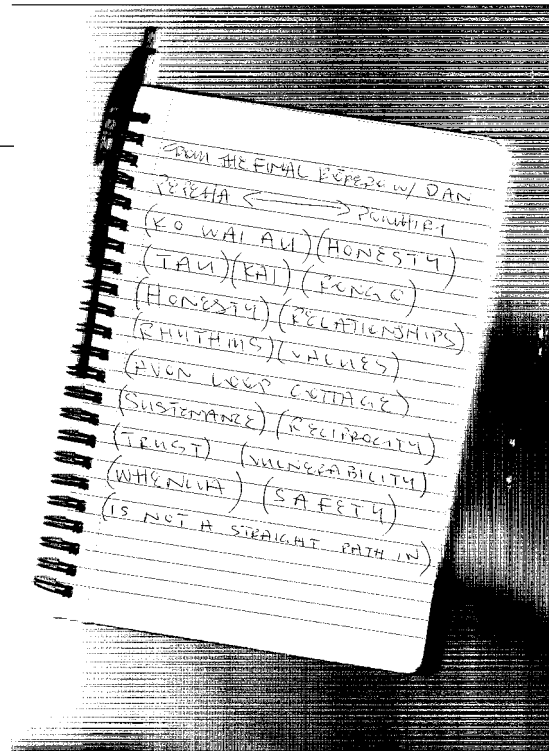 FROM THE FINAL KŌRERO W/ DAN
PEPEHA ⟷ POWHIRI
(KO WAI AU) (HONESTY)
(TAU) (KAI) (RONGO)
(HONESTY) (RELATIONSHIPS)
(RHYTHMS) (VALUES)
(AVON LOOP COTTAGE)
(SUSTENANCE) (RECIPROCITY)
(TRUST) (VULNERABILITY)
(WHENUA) (SAFETY)
(IS NOT A STRAIGHT PATH IN)